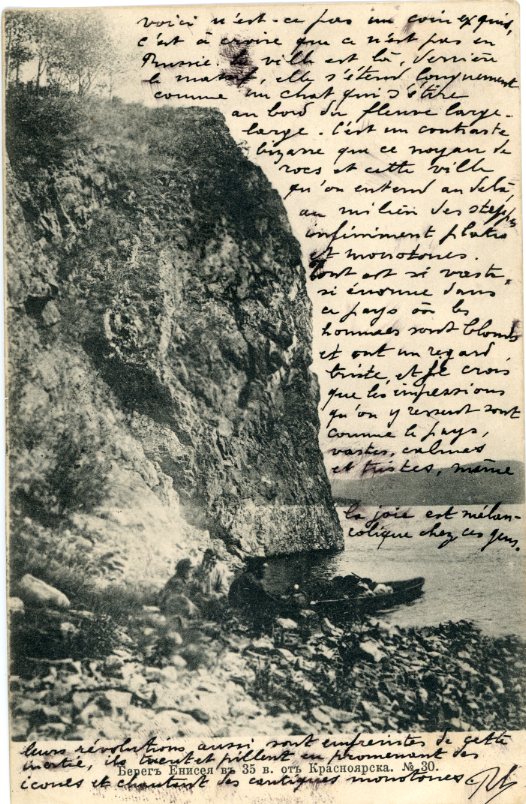 voici n'est-ce pas un coin exquis,
c'est à croire que ce n'est pas en
Russie. la ville est là, derrière
le massif, elle s'étend longuement
comme un chat qui s'étire
au bord du fleuve large-
large. C'est un contraste
bizarre que ce noyau de
rocs et cette ville
qu'on entend au delà,
au milieu des steppes
infiniment plates
et monotones.
Tout est si vaste,
si énorme dans
ce pays où les
hommes sont blonds
et ont un regard
triste, et je crois
que les impressions
qu'on y ressent sont
comme le pays,
vastes, calmes
et tristes, même
la joie est mélan-
colique chez ces gens,
leurs révolutions aussi sont empreintes de cette
inertie, ils tuent et pillent en promenant des
Берегъ Енисея въ 35 в. отъ Красноярска. № 30.
icones et chantant des cantiques monotones